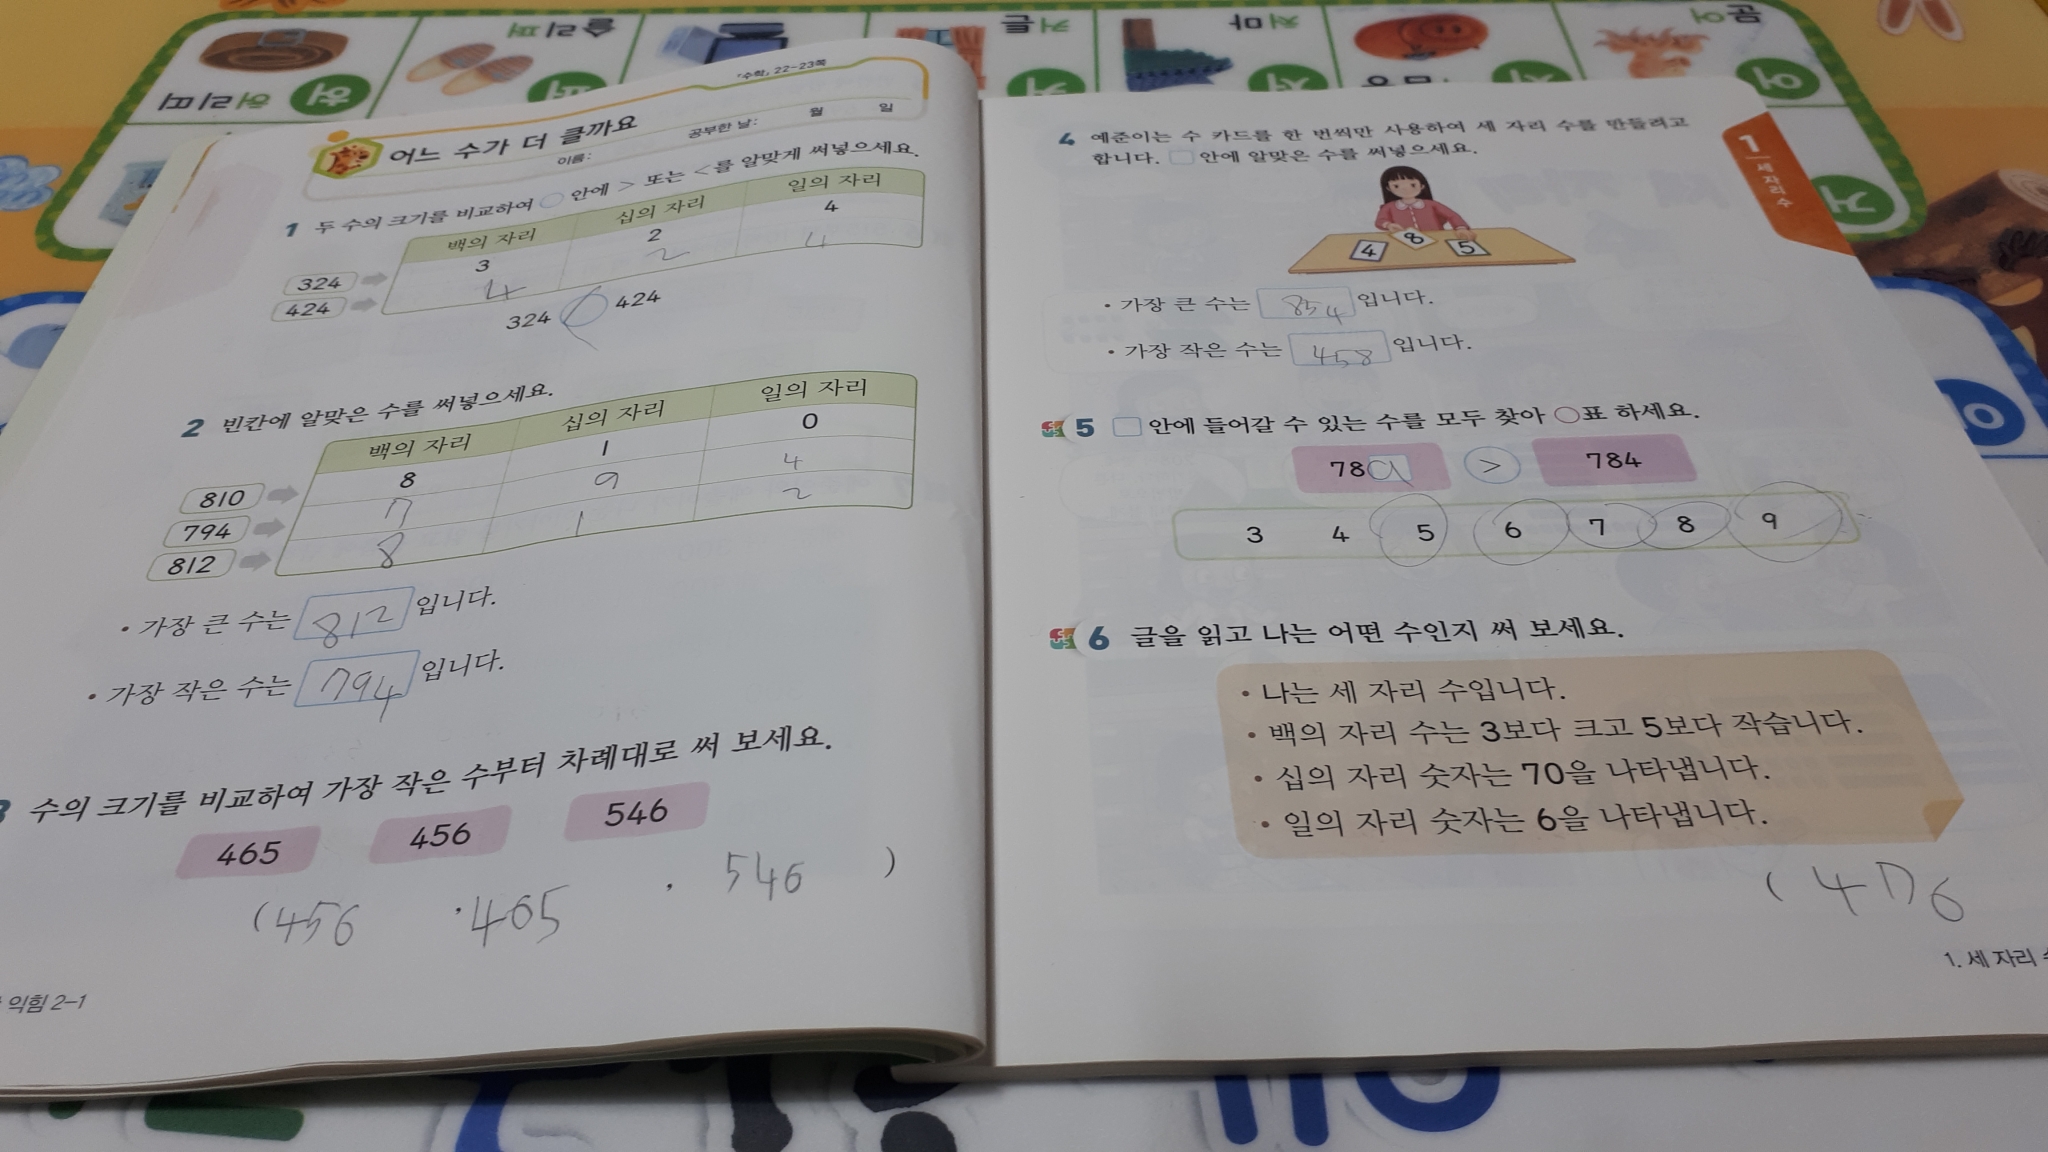 허리띠
슬리퍼
커튼
치마
허
퍼
커
처
어
거
『수학』 22-23쪽
어느 수가 더 클까요
이름:
공부한 날:
월
일
1 두 수의 크기를 비교하여 ○ 안에 > 또는 <를 알맞게 써넣으세요.
백의 자리 십의 자리 일의 자리
324 3 2 4
424 4 2 4
324 < 424
2 빈칸에 알맞은 수를 써넣으세요.
백의 자리 십의 자리 일의 자리
810 8 1 0
794 7 9 4
812 8 1 2
• 가장 큰 수는 812 입니다.
• 가장 작은 수는 794 입니다.
3 수의 크기를 비교하여 가장 작은 수부터 차례대로 써 보세요.
465 456 546
(456 , 465 , 546 )
익힘 2-1
4 예준이는 수 카드를 한 번씩만 사용하여 세 자리 수를 만들려고
합니다. □ 안에 알맞은 수를 써넣으세요.
4 8 5
• 가장 큰 수는 854 입니다.
• 가장 작은 수는 458 입니다.
5 □ 안에 들어갈 수 있는 수를 모두 찾아 ○표 하세요.
789 > 784
3 4 5 6 7 8 9
6 글을 읽고 나는 어떤 수인지 써 보세요.
• 나는 세 자리 수입니다.
• 백의 자리 수는 3보다 크고 5보다 작습니다.
• 십의 자리 숫자는 70을 나타냅니다.
• 일의 자리 숫자는 6을 나타냅니다.
( 476
1. 세 자리
1 세 자리 수